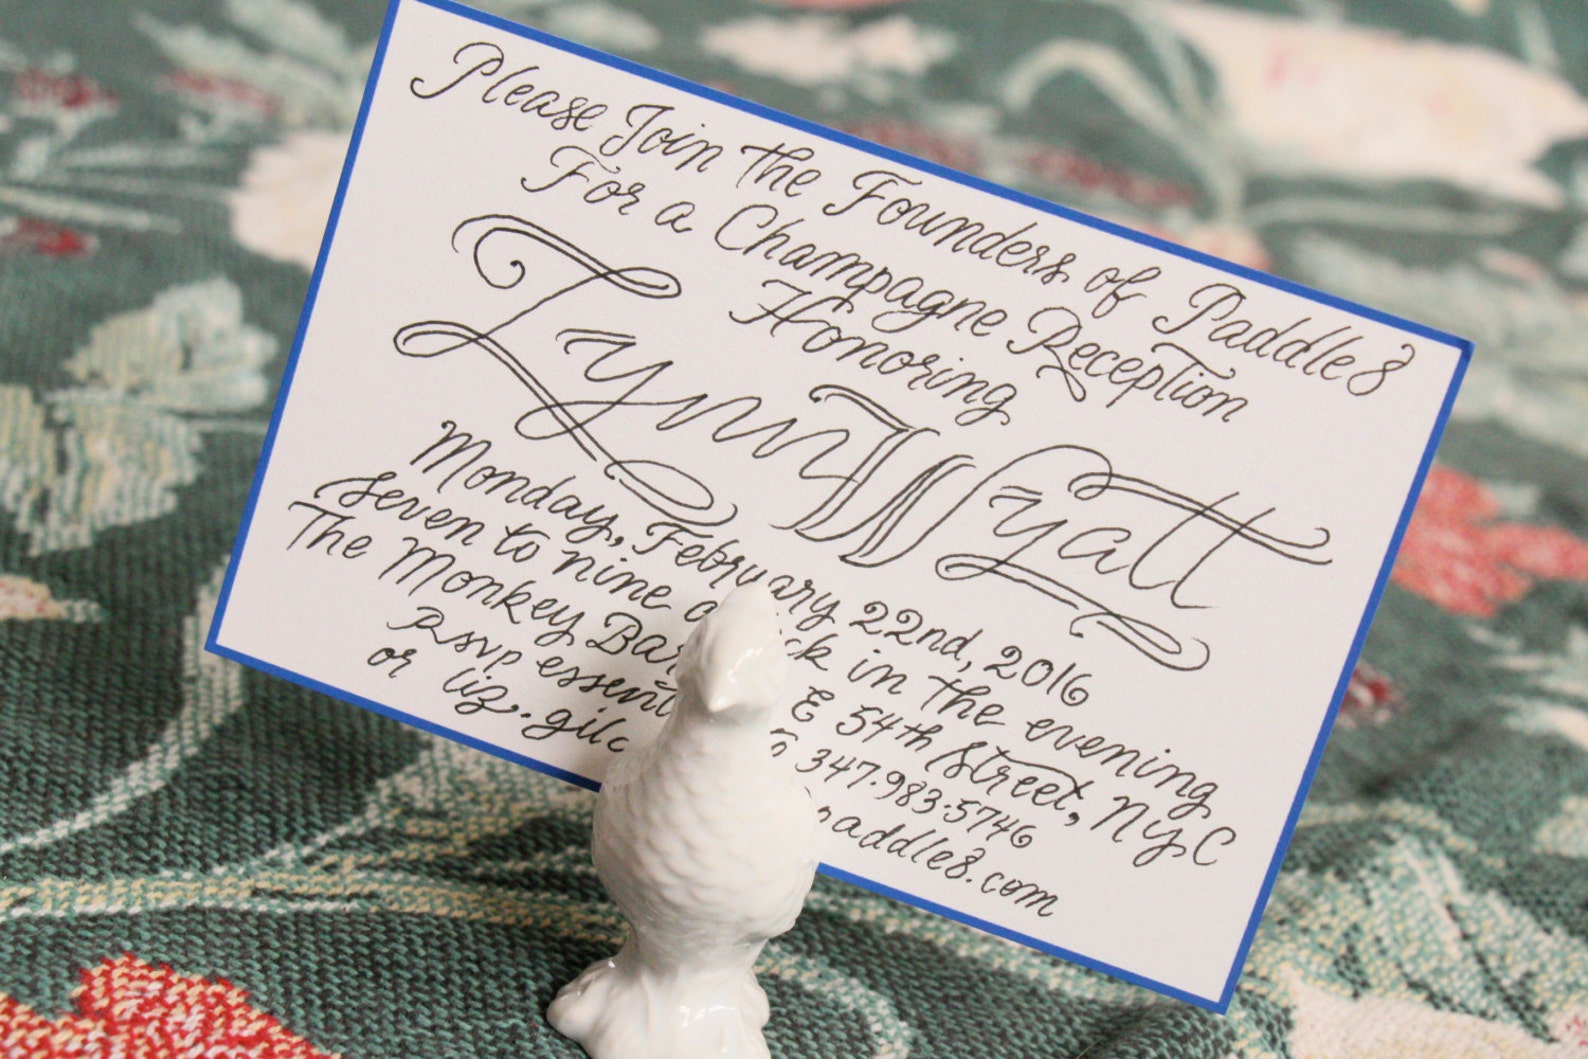 Please Join the Founders of Paddle8
For a Champagne Reception
Honoring
Lynn Wyatt
Monday, February 22nd, 2016
seven to nine in the evening
The Monkey Bar E 54th Street, NYC
Rsvp 347.983.5746
or paddle8.com